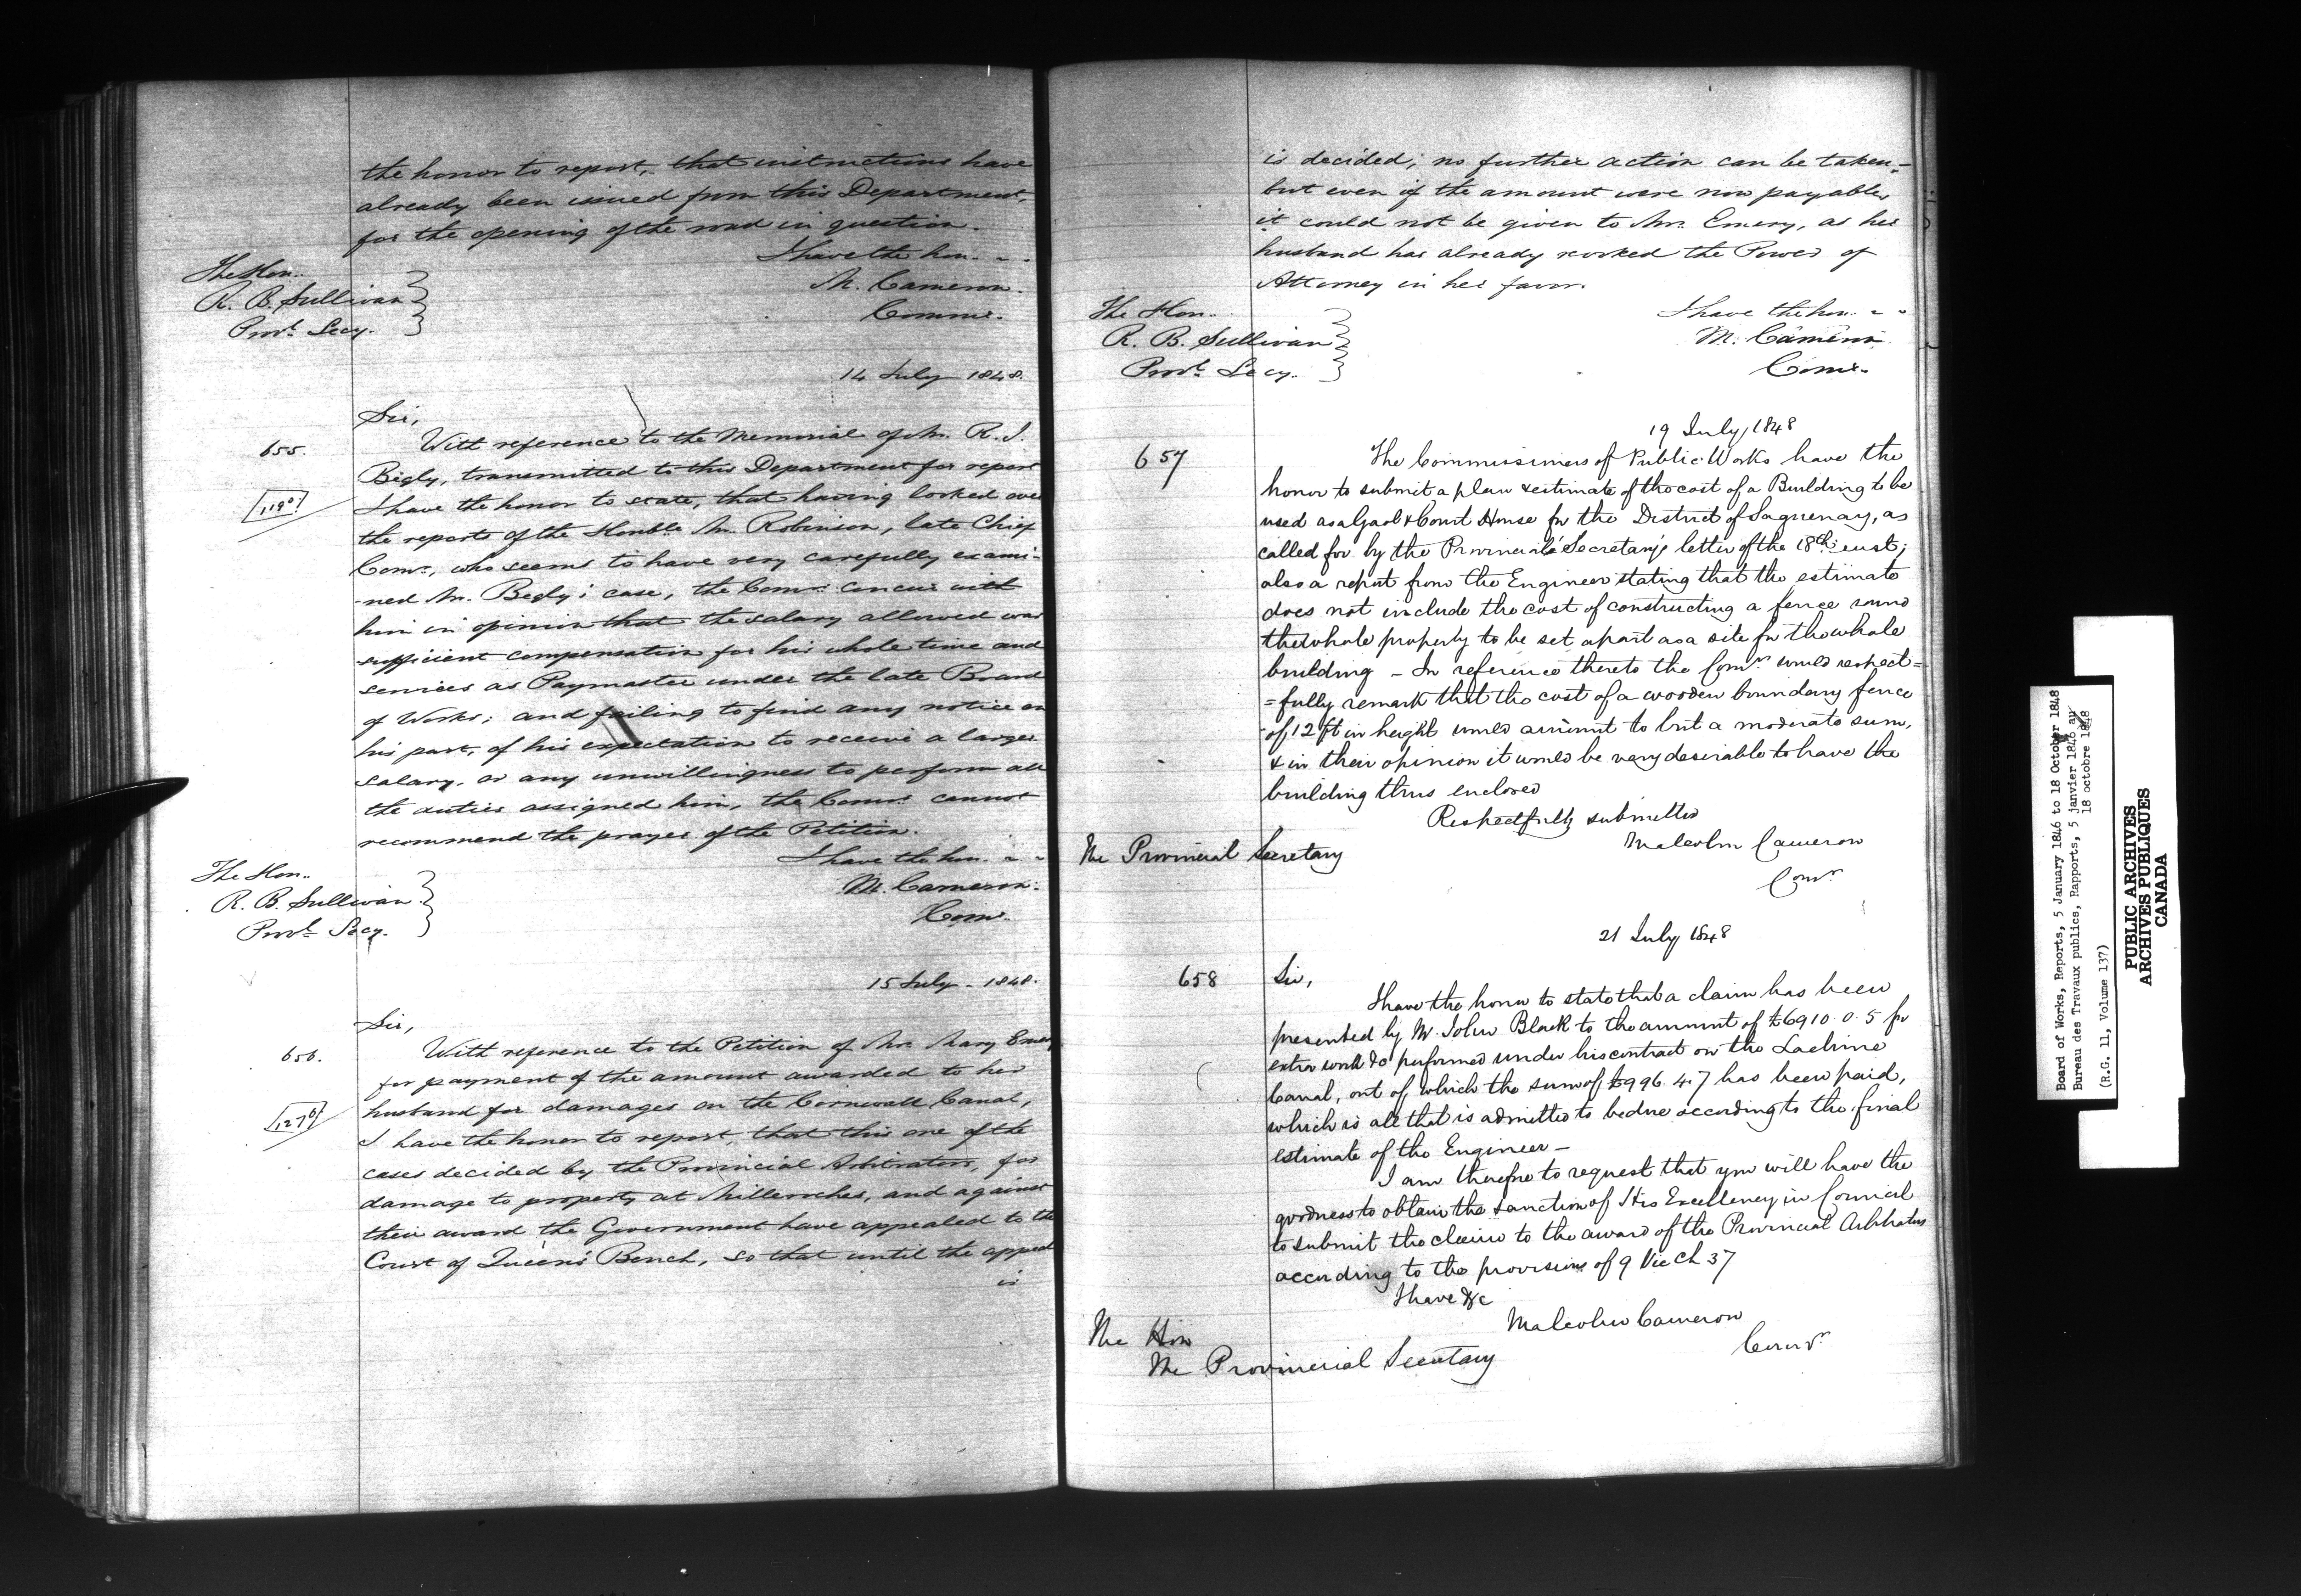 the honor to report, that instructions have
already been issued from this Department,
for the opening of the road in question.
I have the hon. - -
The Hon..
M. Cameron.
R. B. Sullivan
Commr.
Provl. Secy.
14 July 1848.
Sir,
655. With reference to the Memorial of Mr. R. J.
Begly, transmitted to this Department for report
I have the honor to state, that having looked over
the reports of the Honble. Mr. Robinson, late Chief
Comr., who seems to have very carefully exami-
-ned Mr. Begly's case, the Comrs. concur with
him in opinion that the salary allowed was
sufficient compensation for his whole time and
services as Paymaster under the late Board
of Works; and failing to find any notice on
his part, of his expectation to receive a larger
salary, or any unwillingness to perform all
the duties assigned him, the Comrs. cannot
recommend the prayer of the Petition.
I have the hon. - -
The Hon..
M. Cameron.
R. B. Sullivan
Comr.
Provl. Secy.
15 July - 1848.
Sir,
656. With reference to the Petition of Mrs. Mary Emery
for payment of the amount awarded to her
husband for damages on the Cornwall Canal,
I have the honor to report, that this one of the
cases decided by the Provincial Arbitrators, for
damage to property at Milleroches, and against
their award the Government have appealed to the
Court of Queen's Bench, so that until the appeal
is
is decided; no further action can be taken,-
but even if the amount were now payable,
it could not be given to Mrs. Emery, as her
husband has already revoked the Power of
Attorney in her favor.
I have the hon. - -
The Hon..
M. Cameron
R. B. Sullivan
Comr.
Provl. Secy.
19 July, 1848
657 The Commissioners of Public Works have the
honor to submit a plan & estimate of the cost of a Building to be
used as a Gaol & Court House for the District of Saguenay, as
called for by the Provincial Secretary's letter of the 18th inst;
also a report from the Engineer stating that the estimate
does not include the cost of constructing a fence round
the whole property to be set apart as a site for the whole
building - In reference thereto the Comrs would respect=
=fully remark that the cost of a wooden boundary fence
of 12 ft in height would amount to but a moderate sum,
& in their opinion it would be very desirable to have the
building thus enclosed
Respectfully submitted
The Provincial Secretary
Malcolm Cameron
Comr
21 July 1848
658 Sir,
I have the honor to state that a claim has been
presented by Mr. John Black to the amount of £6910. 0. 5 for
extra work &c performed under his contract on the Lachine
Canal, out of which the sum of £996. 4. 7 has been paid,
which is all that is admitted to be due according to the final
estimate of the Engineer -
I am therefore to request that you will have the
goodness to obtain the sanction of His Excellency in Council
to submit the claim to the award of the Provincial Arbitrators
according to the provisions of 9 Vic Ch 37
I have &c
Malcolm Cameron
Comr
The Hon
The Provincial Secretary
Board of Works, Reports, 5 January 1846 to 18 October 1848
Bureau des Travaux publics, Rapports, 5 janvier 1846 au
18 octobre 1848
(R.G. 11, Volume 137)
PUBLIC ARCHIVES
ARCHIVES PUBLIQUES
CANADA